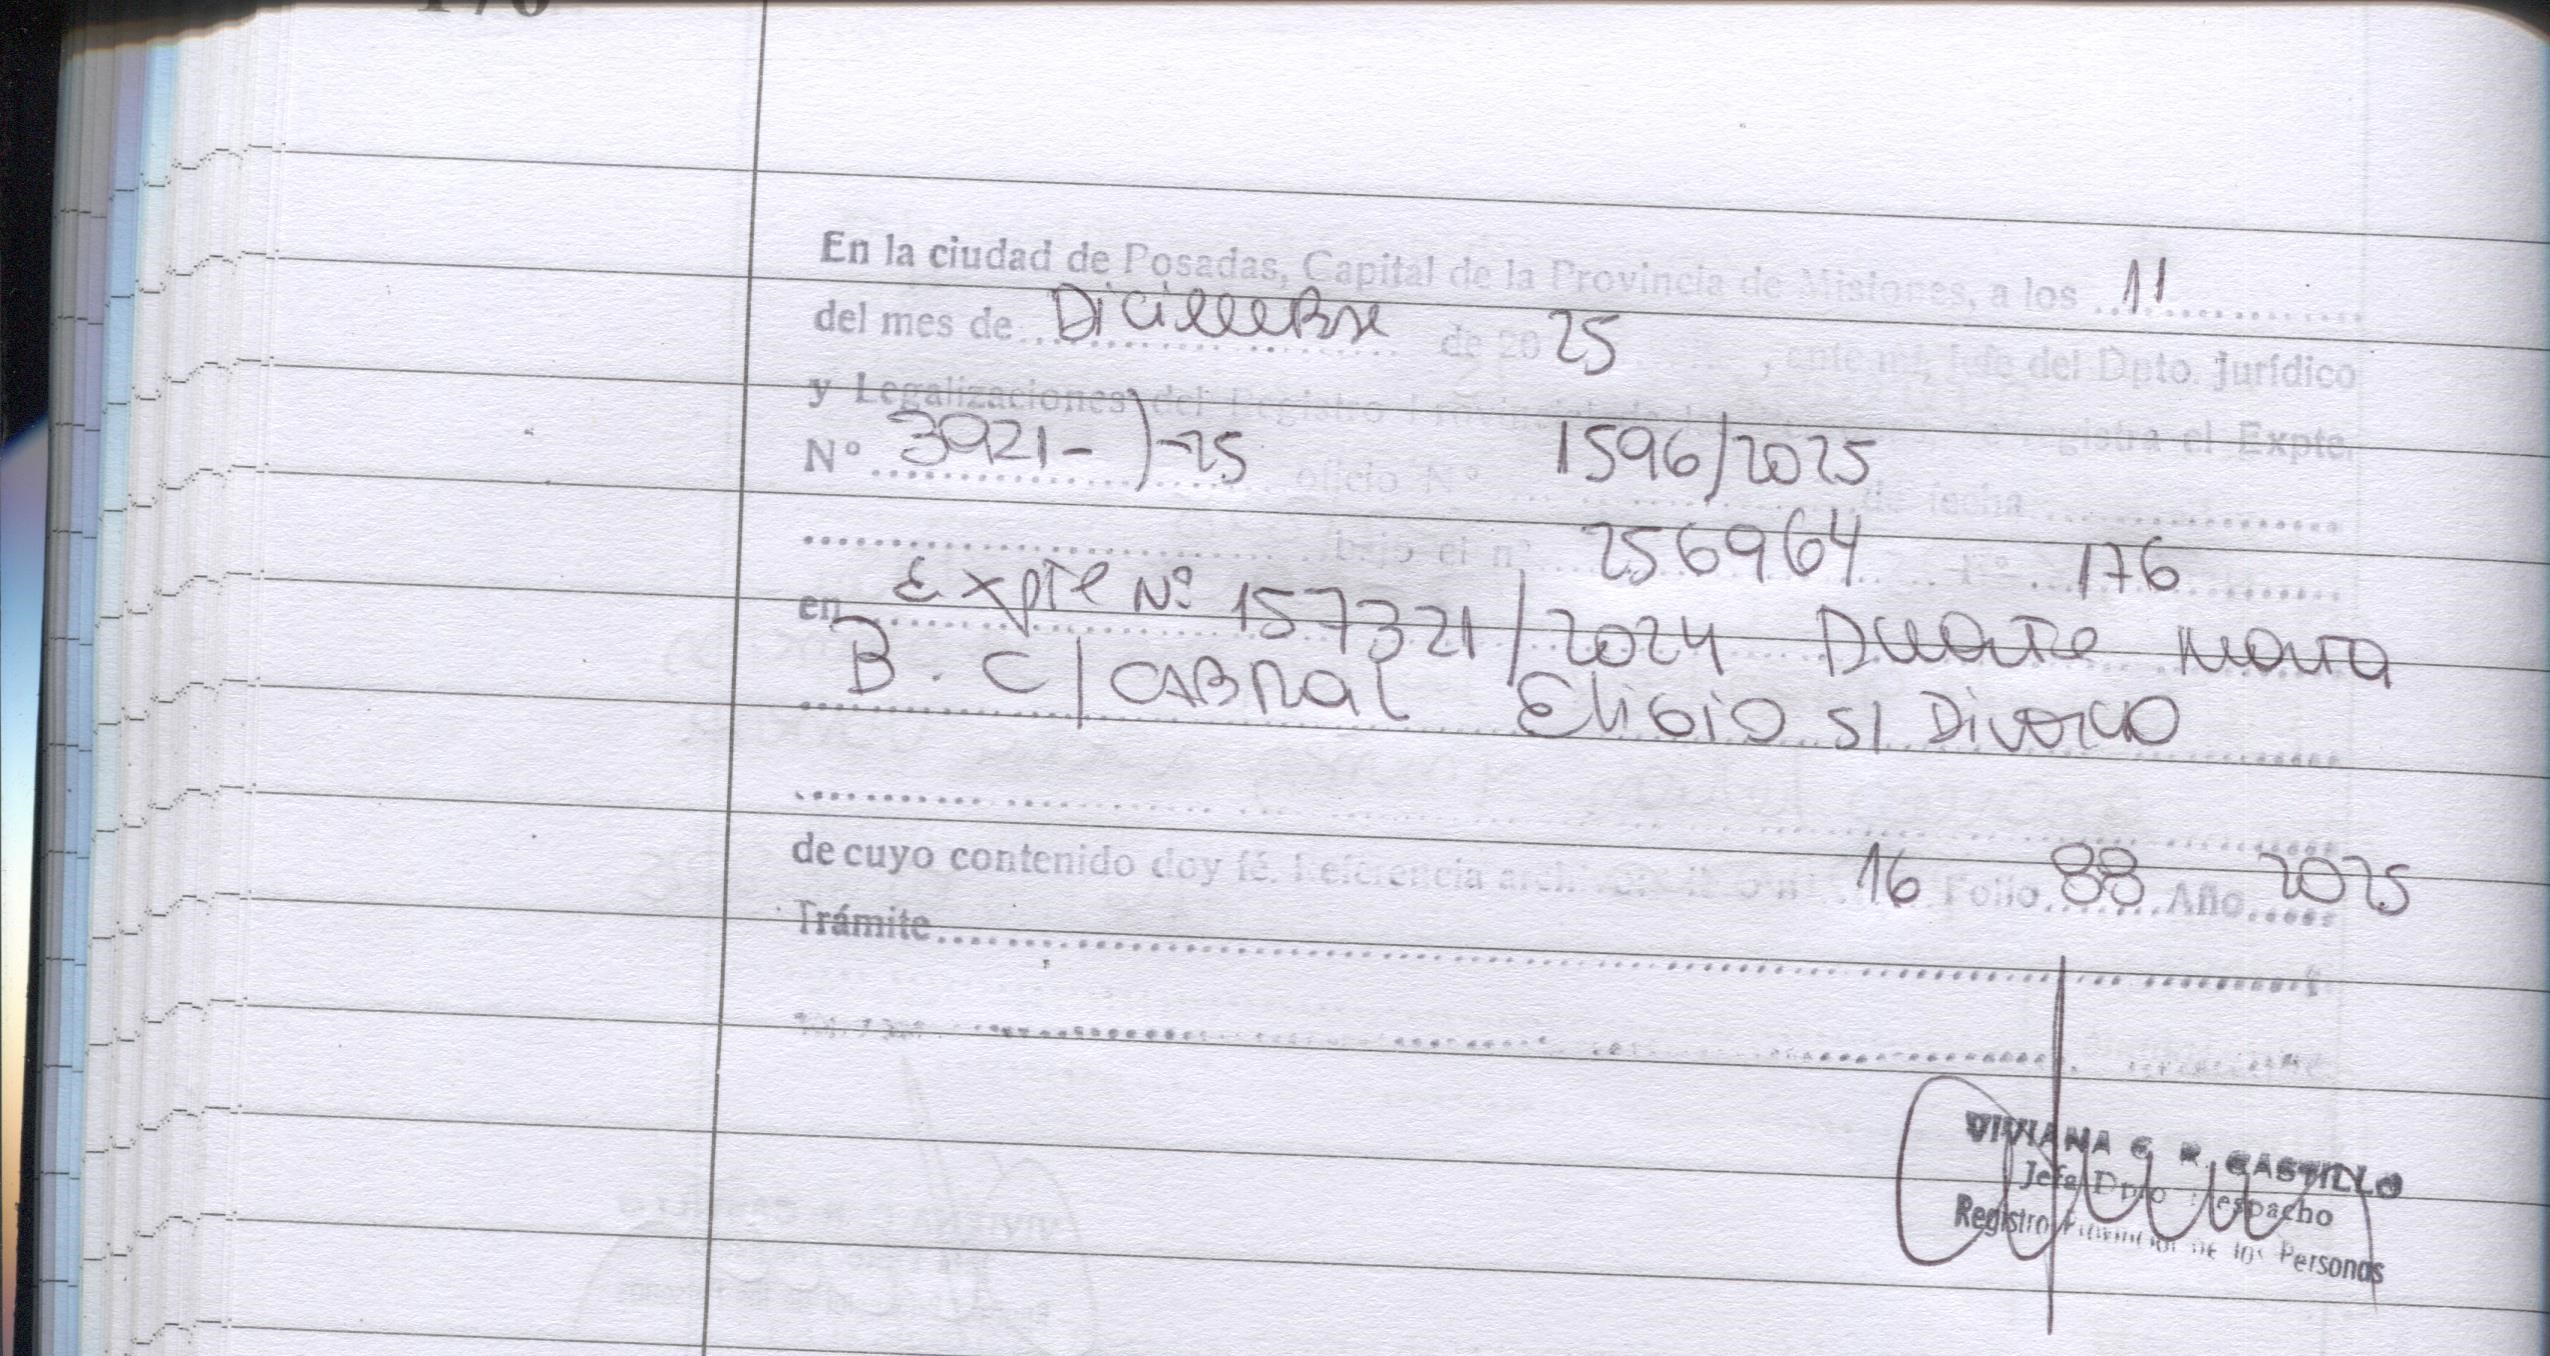 176
En la ciudad de Posadas, Capital de la Provincia de Misiones, a los 11
del mes de Diciembre de 20 25, ante mi, Jefe del Dpto. Jurídico
y Legalizaciones del Registro registra el Expte.
Nº 3921-)-25 oficio Nº 1596/2025 de fecha
bajo el nº 256964 Fº 176
en Expte Nº 157321/2024 Duarte Maria
B. C/ CABRAL Eligio S/ Divorcio
de cuyo contenido doy fé. Referencia 16 Folio 88 Año 2025
Trámite
VIVIANA C. R. CASTILLO
Jefa Dpto Despacho
Registro Provincial de los Personas